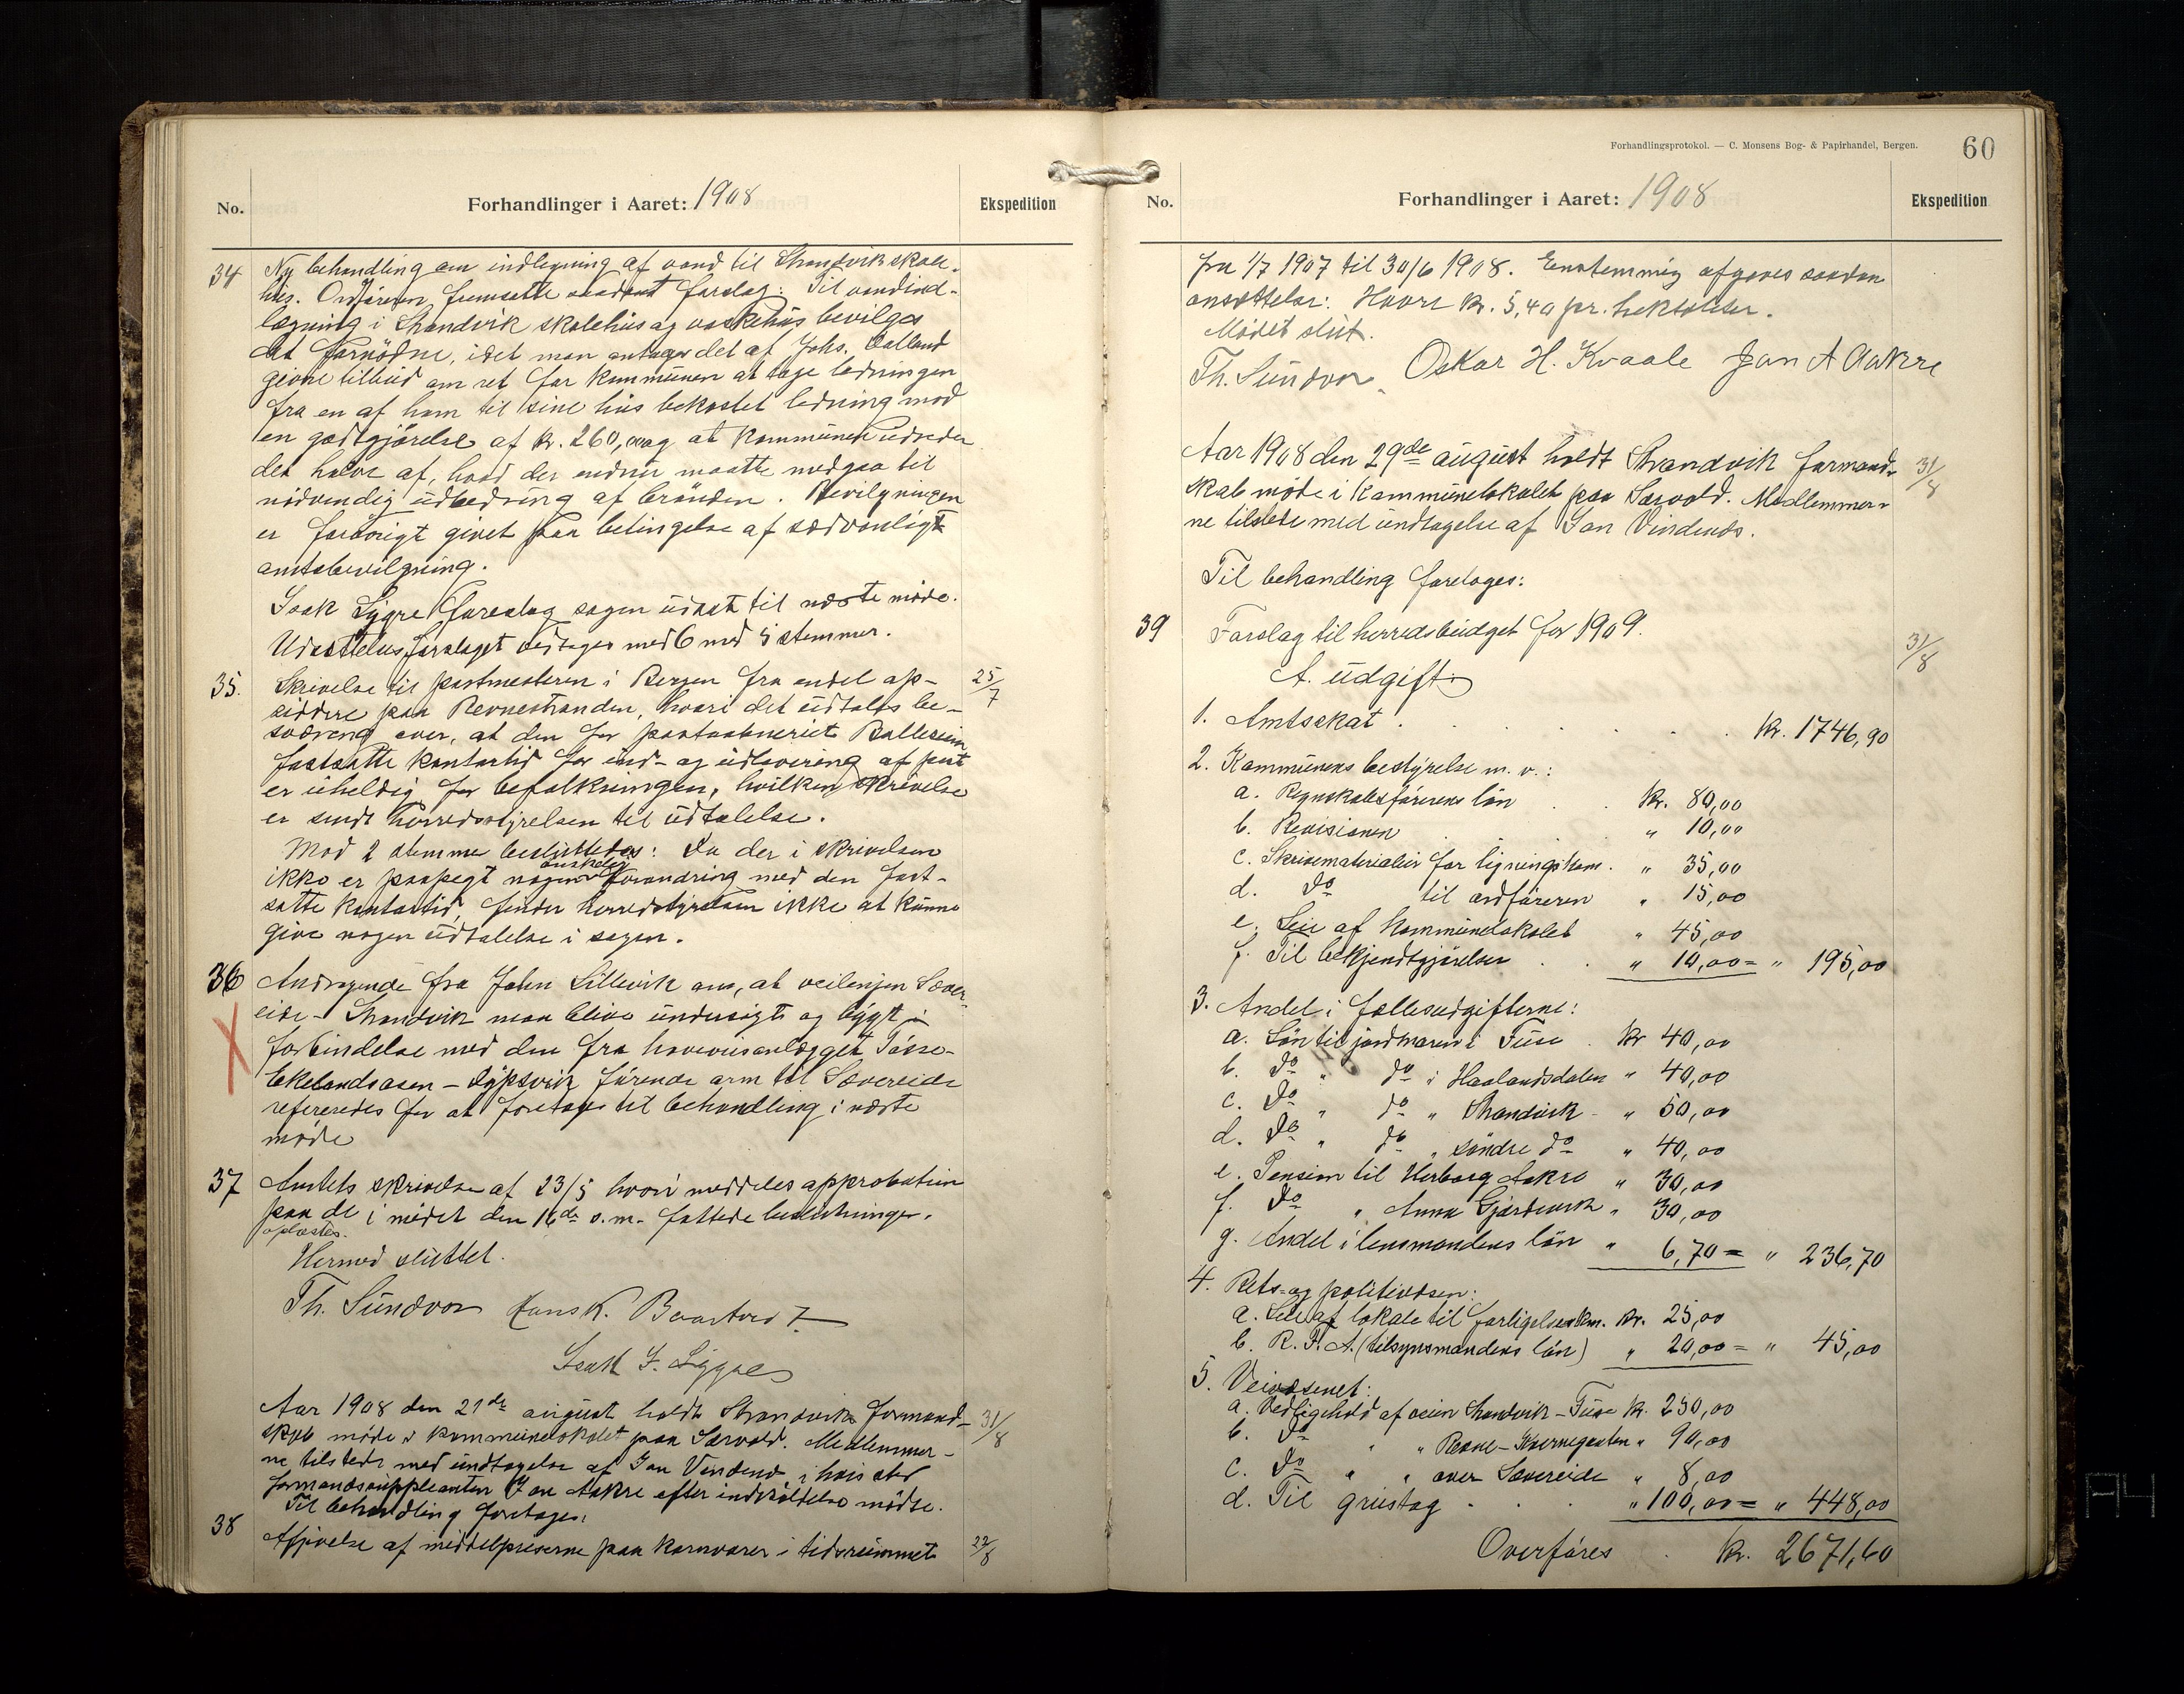 No.
Forhandlinger i Aaret: 1908
Ekspedition
34 Ny behandling om indlegning af vand til Strandvik skole-
hus. Ordføreren fremsatte saadant forslag: Til vandind-
lægning i Strandvik skolehus og vaskehus bevilges
det fornödne, idet man antager det af Johs. Dalland
givne tilbud om ret for kommunen at tage ledningen
fra en af ham til sine hus bekostet ledning mod
en godtgjörelse af kr. 260,00 og at kommunen udreder
det halve af, hvad der endnu maatte medgaa til
nödvendig udbedring af brönden. Bevilgningen
er forövrigt givet paa betingelse af sedvanligt
amtsbevilgning.
Isak Lygre foreslog sagen udsat til næste möde.
Udsettelsesforslaget vedtages med 6 mod 5 stemmer.
35. Skrivelse til postmesteren i Bergen fra endel op- 25/7
siddere paa Revnestranden, hvori det udtales be-
sværing over, at den for postaabneriet Balleseim
fastsatte kontortid for ind- og udlevering af post
er uheldig for befolkningen, hvilken skrivelse
er sendt herredsstyrelsen til udtalelse.
Mod 2 stemme besluttedes: Da der i skrivelsen
ikke er paapegt nogen önskelig forandring med den fast-
satte kontortid, finder herredstyrelsen ikke at kunne
give nogen udtalelse i sagen.
36 Andragende fra John Lillevik om, at veilinjen Sæver-
eide - Strandvik maa blive undersögt og bygt i
forbindelse med den fra hoveveisanlægget Tösse-
Ekelandsosen - Dypsvik förende arm til Sævereide
refereredes for at foretages til behandling i næste
möde
37 Amtets skrivelse af 23/5 hvori meddeles approbation
paa de i mödet den 16de s.m. fattede beslutninger.
oplæstes.
Hermed sluttet.
Th. Sundvor Hans K. Baartvedt
Isak J. Lygre
Aar 1908 den 21de august holdt Strandvik formand- 31/8
skab möde i kommunelokalet paa Sævold. Medlemmer-
ne tilstede med undtagelse af Jan Vindenes, i hvis sted
formandssuppleanten Jon Aakre efter indkaldelse mödte.
Til behandling foretages:
38 Afgivelse af middelpriserne paa kornvarer i tidsrummet 22/8
Forhandlingsprotokol. — C. Monsens Bog- & Papirhandel, Bergen.
60
No.
Forhandlinger i Aaret: 1908
Ekspedition
fra 1/7 1907 til 30/6 1908. Enstemmig afgaves saadan
ansættelse: Havre kr. 5,40 pr. hektoliter.
Mödet slut.
Th. Sundvor Oskar H. Kvaale Jon A Aakre
Aar 1908 den 29de august holdt Strandvik formand- 31/8
skab möde i kommunelokalet paa Sævold. Medlemmer-
ne tilstede med undtagelse af Jan Vindenes.
Til behandling foretages:
39 Forslag til herredsbudget for 1909. 31/8
A. udgift:
1. Amtsskat . . . . . . kr. 1746,90
2. Kommunens bestyrelse m. v.:
a. Regnskabsförerens lön . . kr. 80,00
b. Revisionen " 10,00
c. Skrivematerialier for ligningskom. " 35,00
d. do til ordföreren " 15,00
e. Leie af kommunelokalet " 45,00
f. Til bekjendtgjörelser . . " 10,00 = " 195,00
3. Andel i fællesudgifterne:
a. Lön til jordmoren i Fuse . kr 40,00
b. do " do i Haalandsdalen " 40,00
c. do " do " Strandvik - " 50,00
d. do " do " söndre do " 40,00
e. Pension til Herborg Aakre " 30,00
f. do " Anna Gjerdevik " 30,00
g. Andel i lensmandens lön " 6,70 = " 236,70
4. Rets- og politivæsen:
a. Leie af lokale til forligelseskm. kr. 25,00
b. R. F. A. (tilsynsmandens lön) " 20,00 = " 45,00
5. Veivæsenet:
a. Vedligehold af veien Strandvik - Fuse kr. 250,00
b. do " " Revne - Kvernegaten " 90,00
c. do " " over Sævereide " 8,00
d. Til grustag . . . " 100,00 = " 448,00
Overföres . kr. 2671,60